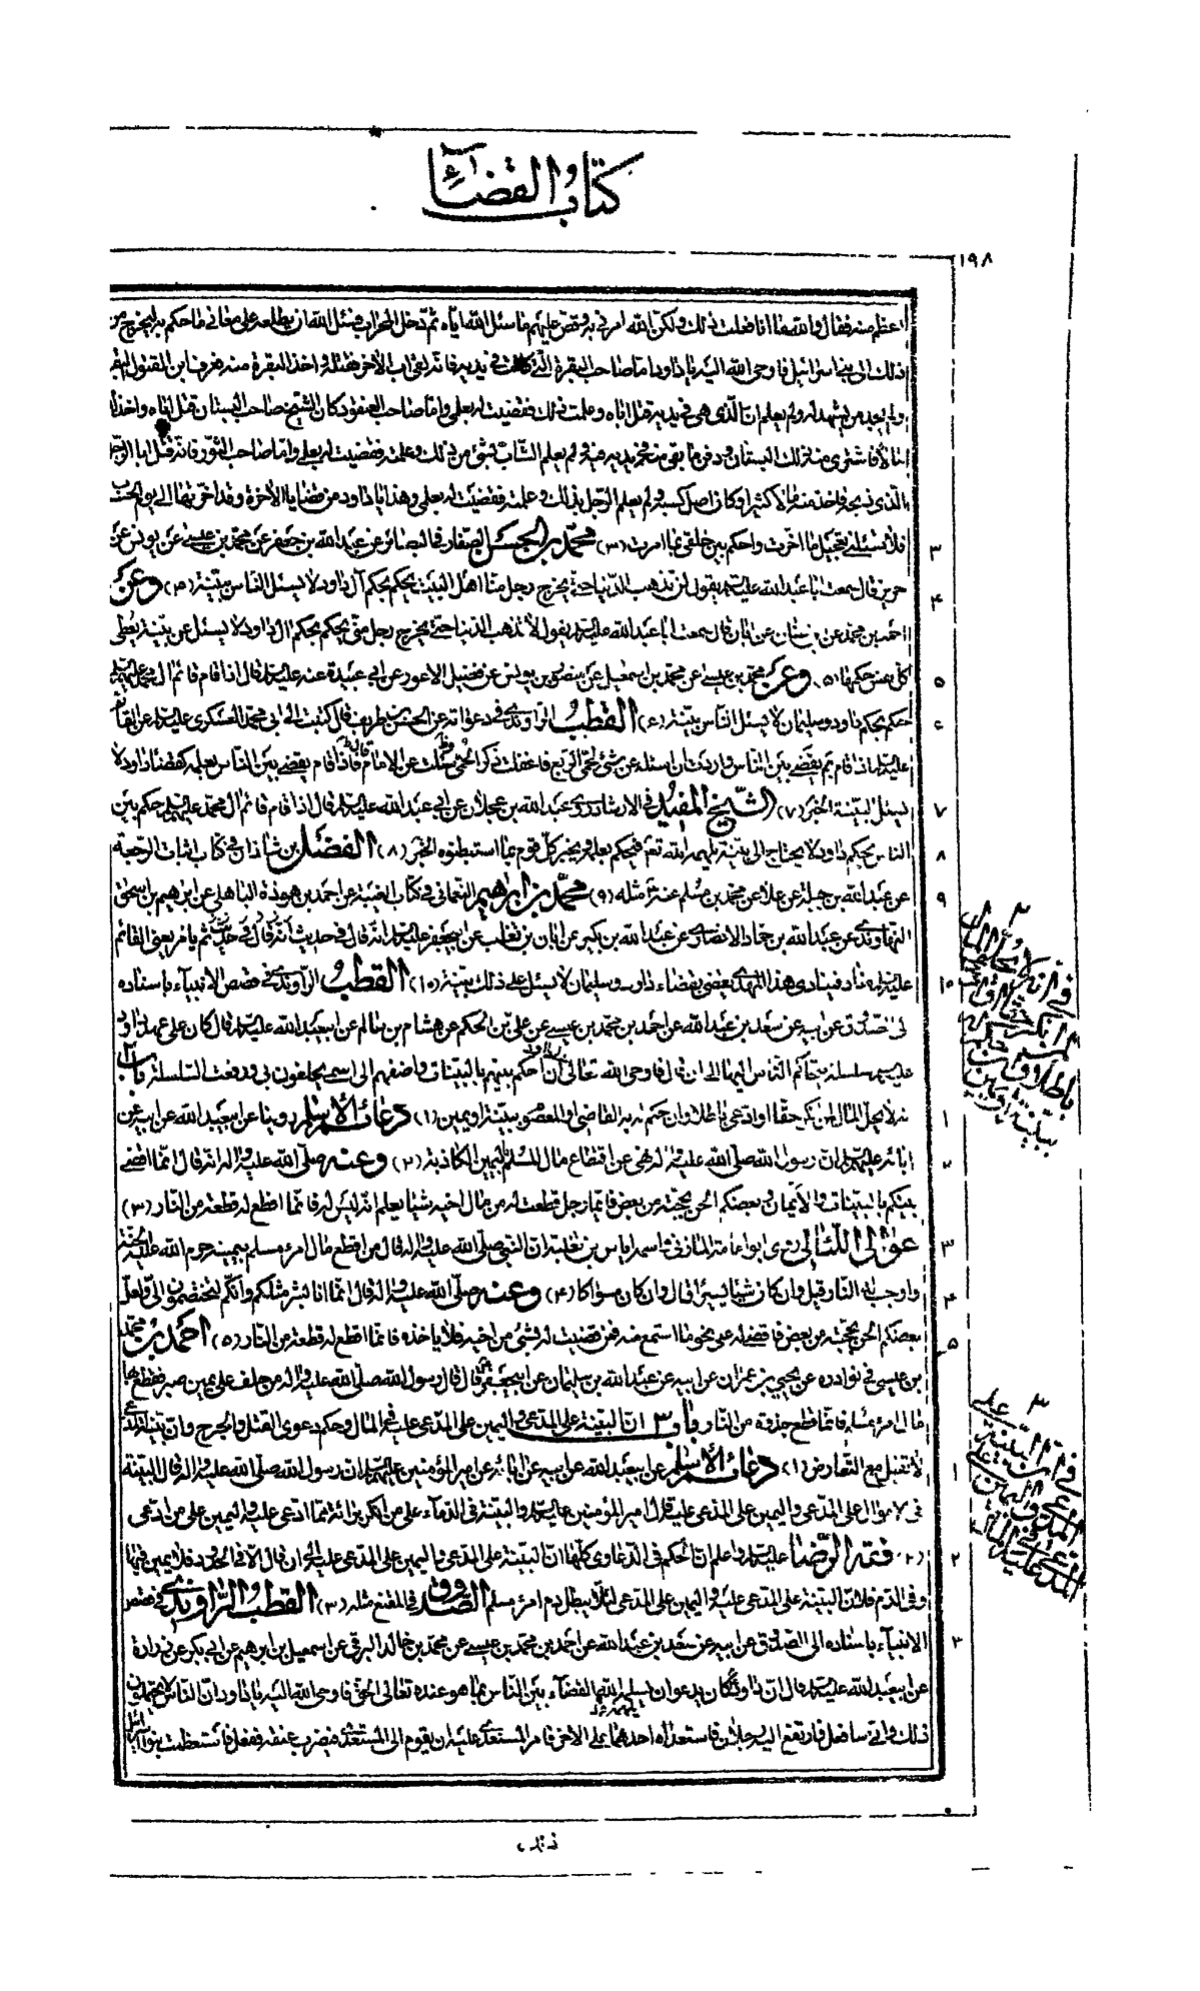 كتاب القضاء
١٩٨
اعظم منه فقال والله ما انا فعلت ذلك ولكن الله امرنى به وقص عليهم ما سئل الله اياه ثم دخل المحراب فسئل الله ان يطلعه على معانى ما حكم به ليخرج من
ذلك الى بنى اسرائيل فاوحى الله اليه يا داود اما صاحب البقرة التى كانت فى يديه فانه لقى اب الآخر فقتله واخذ البقرة منه فعرف ابن المقتول البقرة
ولم يجد من يشهد له ولم يعلم ان الذى هى فى يديه قتل اباه وعلمت ذلك فقضيت له بعلمى واما صاحب العنقود كان الشيخ صاحب البستان قتل اباه واخذ
مالا فاشترى منه ذلك البستان ودفن ما بقى منه فى يديه ولم يعلم الشاب بشئ من ذلك وعلمته فقضيت له بعلمى واما صاحب الثور فانه قتل ابا الرجل
الذى ذبحه واخذ منه مالا كثيرا وكان اصل كسبه ولم يعلم الرجل بذلك وعلمته فقضيت له بعلمى وهذا يا داود من قضايا الآخرة وقد اخرتها الى يوم الحساب
فلا تسئلنى تعجيل ما اخرت واحكم بين خلقى بما امرت (٣) محمد بن الحسن الصفار فى البصائر عن عبد الله بن جعفر عن محمد بن عيسى عن يونس عن
حريز قال سمعت ابا عبد الله عليه السلام يقول لن تذهب الدنيا حتى يخرج رجل منا اهل البيت يحكم بحكم آل داود لا يسئل الناس بينة (٤) وعن
احمد بن محمد عن ابن سنان عن ابان قال سمعت ابا عبد الله عليه السلام يقول لا تذهب الدنيا حتى يخرج رجل منى يحكم بحكم آل داود لا يسئل عن بينة يعطى
كل نفس حكمها (٥) وعن محمد بن عيسى عن محمد بن اسمعيل عن منصور بن يونس عن فضيل الاعور عن ابى عبيدة عنه عليه السلام قال اذا قام قائم آل محمد عليهم السلام
حكم بحكم داود وسليمان لا يسئل الناس بينة (٦) القطب الراوندى فى دعواته عن الحسن بن طريف قال كتبت الى ابى محمد العسكرى عليه السلام عن القائم
عليه السلام اذا قام بم يقضى بين الناس واردت ان اسئله عن شئ لحمى الربع فاغفلت ذكر الحمى سئلت عن الامام فاذا قام يقضى بين الناس بعلمه كقضاء داود لا
يسئل البينة الخبر (٧) الشيخ المفيد فى الارشاد روى عبد الله بن عجلان عن ابى عبد الله عليه السلام قال اذا قام قائم آل محمد عليهم السلام حكم بين
الناس بحكم داود لا يحتاج الى بينة يلهمه الله تعالى فيحكم بعلمه ويخبر كل قوم بما استبطنوه الخبر (٨) الفضل بن شاذان فى كتاب اثبات الرجعة
عن عبد الله بن جبلة عن علاء عن محمد بن مسلم عنه مثله (٩) محمد بن ابراهيم النعمانى فى كتاب الغيبة عن احمد بن هوذة الباهلى عن ابرهيم بن اسحق
النهاوندى عن عبد الله بن حماد الانصارى عن عبد الله بن بكير عن ابان بن تغلب عن ابى جعفر عليه السلام انه قال فى حديث ثم يامر يعنى القائم
عليه السلام مناد فينادى هذا المهدى يقضى بقضاء داود وسليمان لا يسئل على ذلك بينة (١٠) القطب الراوندى فى قصص الانبياء باسناده
الى الصدوق عن ابيه عن سعد بن عبد الله عن احمد بن محمد بن عيسى عن على بن الحكم عن هشام بن سالم عن ابى عبد الله عليه السلام قال كان على عهد داود
عليه السلام سلسلة يتحاكم الناس اليها الى ان قال فاوحى الله تعالى ان احكم بينهم بالبينات واضفهم الى اسمى يحلفون بى ورفعت السلسلة باب ٢
انه لا يحل المال لمن انكر حقا او ادعى باطلا وان حكم له به القاضى او المعصوم ببينة او يمين (١) دعائم الاسلام روينا عن ابى عبد الله عن ابيه عن
ابائه عليهم السلام ان رسول الله صلى الله عليه وآله نهى عن اقتطاع مال المسلم باليمين الكاذبة (٢) وعنه صلى الله عليه وآله انه قال انما اقضى
بينكم بالبينات والايمان وبعضكم الحن بحجته من بعض فايما رجل قطعت له من مال اخيه شيئا يعلم انه ليس له فانما اقطع له قطعة من النار (٣)
عوالى اللئالى روى ابو امامة المازنى واسمه اياس بن ثعلبة ان النبى صلى الله عليه وآله قال من اقتطع مال امرء مسلم بيمينه حرم الله عليه الجنة
واوجب له النار قيل وان كان شيئا يسيرا قال وان كان سواكا (٤) وعنه صلى الله عليه وآله قال انما انا بشر مثلكم وانكم لتختصمون الى ولعل
بعضكم الحن بحجته من بعض فاقضى له على نحو ما استمع منه فمن قضيت له بشئ من اخيه فلا ياخذه فانما اقطع له قطعة من النار (٥) احمد بن محمد
بن عيسى فى نوادره عن يحيى بن عمران عن ابيه عن عبد الله بن سليمان عن ابى جعفر قال قال رسول الله صلى الله عليه وآله من حلف على يمين صبر فقطع بها
مال امرء مسلم فانما قطع جذوة من النار باب ٣ ان البينة على المدعى واليمين على المدعى عليه فى المال وحكم دعوى القتل والجرح وان بينة المدعى عليه
لا تقبل مع التعارض (١) دعائم الاسلام عن ابى عبد الله عن ابيه عن ابائه عن امير المؤمنين عليهم السلام ان رسول الله صلى الله عليه وآله قال البينة
فى الاموال على المدعى واليمين على المدعى عليه قال امير المؤمنين عليه السلام والبينة فى الدماء على من انكر براءة مما ادعى عليه واليمين على من ادعى
(٢) فقه الرضا عليه السلام واعلم ان الحكم فى الدعاوى كلها ان البينة على المدعى واليمين على المدعى عليه الى ان قال الا فى الحدود فلا يمين فيها
وفى الدم فلان البينة على المدعى عليه واليمين على المدعى لئلا يبطل دم امرء مسلم الصدوق فى المقنع مثله (٣) القطب الراوندى فى قصص
الانبياء باسناده الى الصدوق عن ابيه عن سعد بن عبد الله عن احمد بن محمد بن عيسى عن محمد بن خالد البرقى عن اسمعيل بن ابرهيم عن ابى بكر عن زرارة
عن ابى عبد الله عليه السلام قال ان داود كان يدعو ان يلهمه الله القضاء بين الناس بما هو عنده تعالى الحق فاوحى الله اليه يا داود ان الناس لا يحتملون
ذلك وانى سافعل فارتفع اليه رجلان فاستعداه احدهما على الآخر فامر المستعدى عليه ان يقوم الى المستعدى فيضرب عنقه ففعل فاستعظمت بنو اسرائيل
ذلك